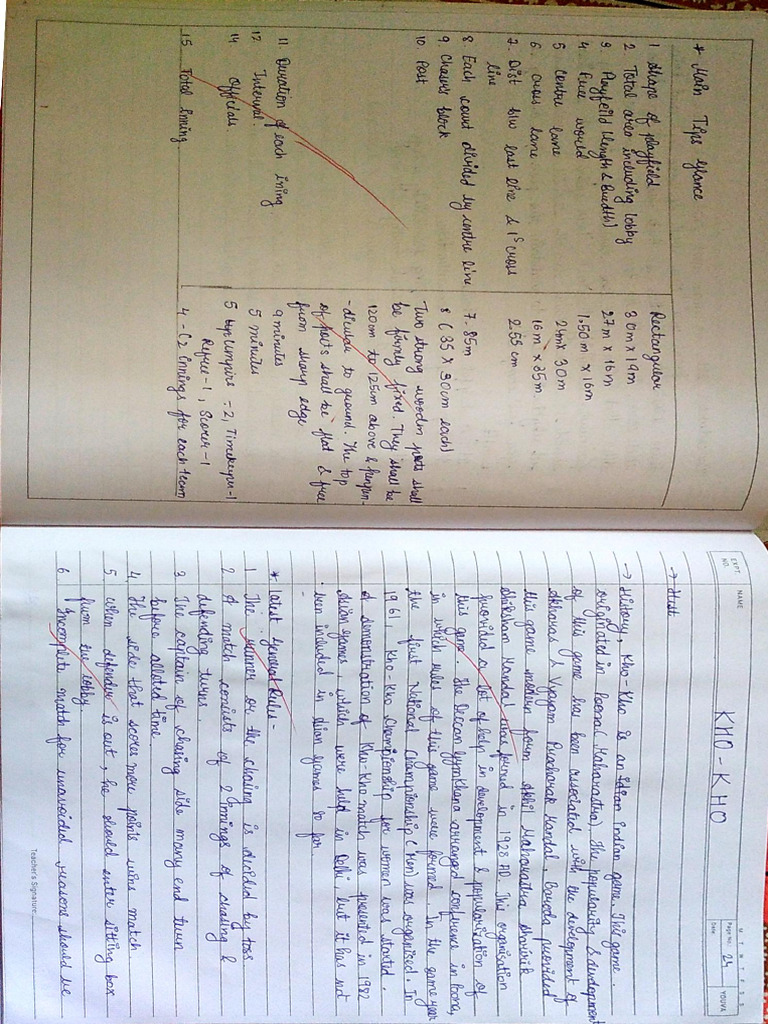 * Main Tips Glance
1 Shape of playfield Rectangular
2 Total area including lobby 30m x 19m
3 Playfeild (Length & Breadth) 27m x 16m
4 Free world 1.50m x 16m
5 Centre lane 24m x 30m
6 Cross lane 16m x 35m
7. Dist b/w last line & 1st cross 2.55 cm
line
8 Each court divided by centre line 7.85m
9 Chasers block 8 (35 x 30cm each)
10 Post Two strong wooden posts shall
be firmly fixed. They shall be
120cm to 125cm above & perpen-
-dicular to ground. The top
of posts shall be flat & free
from sharp edge
11 Duration of each ining 9 minutes
12 Interval 5 minutes
14 Officials 5 umpires = 2, Timekeeper-1
Refree-1, Scorer-1
15 Total Inning 4 - (2 innings for each team
EXPT. NO.
NAME
M T W T F S S
Page No.: 24
Date:
YOUVA
KHO - KHO
→ Hist
→ History:- Kho-Kho is an Indian Indian game. This game
originated in Poona (Maharastra). The popularity & development
of this game has been associated with the development of
Akharas & Vyayam Pracharak Mandal. Baroda provided
this game modern form Akhil Maharastra Sharirik
Shikshan Mandal was formed in 1928 AD. This organisation
provided a lot of help in development & popularization of
this game. The Deccan Gymkhana arranged confrence in Poona,
in which rules of this game were formed. In the same year
the first National Championship (Men) was organised. In
1961, Kho-Kho Championship for women was started.
A demonstration of Kho-Kho match was presented in 1982
Asian games, which were held in Delhi but it has not
been included in Asian games so far
* Latest General Rules -
1 The runner or the chasing is decided by toss
2 A match consists of 2 innings of chasing &
defending turns.
3 The captain of chasing side many end turn
before alloted time.
4 The side that scores more points wins match
5. When defender is out, he should enter sitting box
from the lobby.
6 Incomplete match for unavoided reasons should be
Teacher's Signature: